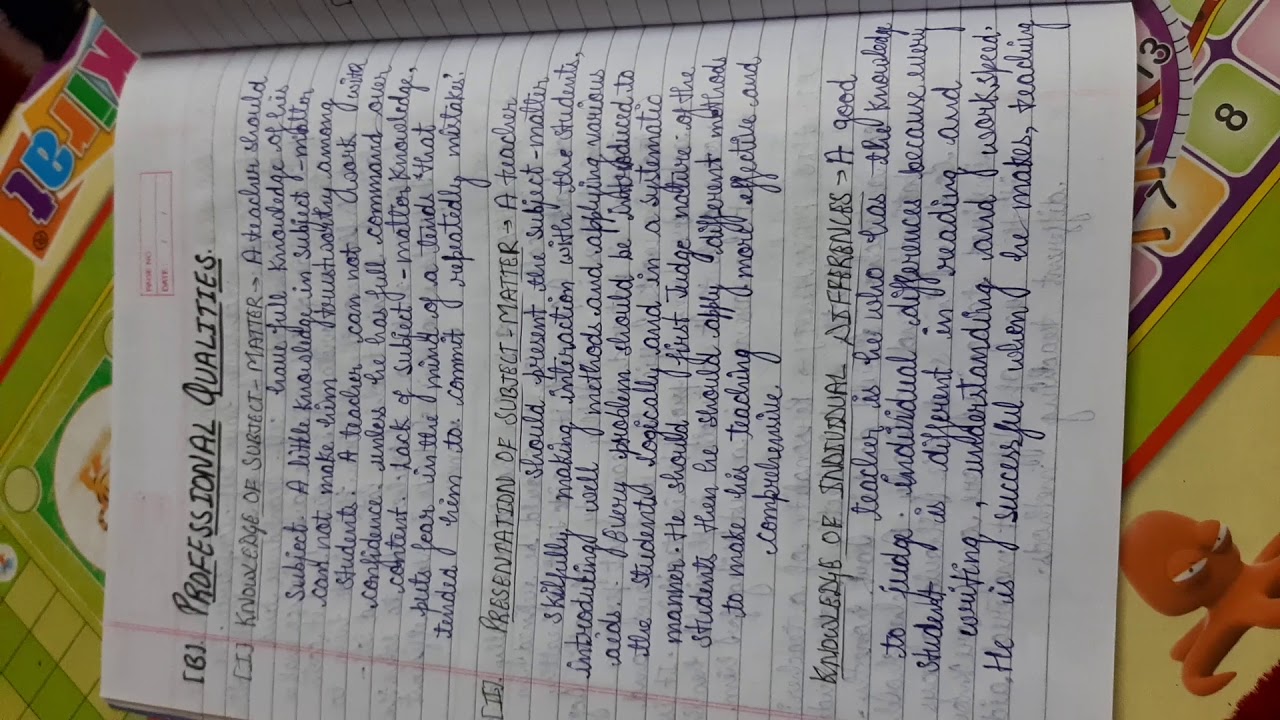 PAGE NO.
DATE:
[B]. PROFESSIONAL QUALITIES.
[I] KNOWLEDGE OF SUBJECT-MATTER → A teacher should
have full knowledge of his
subject. A little knowledge in subject-matter
can not make him trustworthy among
students. A teacher can not work with
confidence unless he has full command over
content. Lack of subject-matter knowledge,
puts fear in the mind of a tends that
tended him to commit repeatedly mistake.
[II]. PRESENTATION OF SUBJECT-MATTER → A teacher
should present the subject-matter
skilfully making interaction with the students,
introducting well methods and applying various
aids. Every problem should be introduced to
the students logically and in a systematic
manner. He should first judge nature of the
students then he should apply different methods
to make his teaching more effective and
comprehensive
KNOWLEDGE OF INDIVIDUAL DIFFERENCES → A good
teacher is he who has the knowledge
to judge individual differences because every
student is different in reading and
writing, understanding and work speed.
He is successful when he makes, teaching
13
8
7